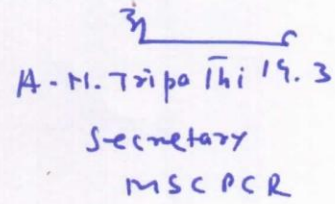 A. N. Tripathi 19.3
Secretary
MSCPCR